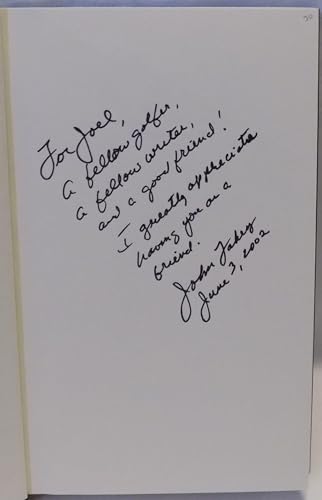 For Joel,
A fellow golfer,
a fellow writer,
and a good friend!
I greatly appreciate
having you as a
friend.
John Fahey
June 3, 2002
20